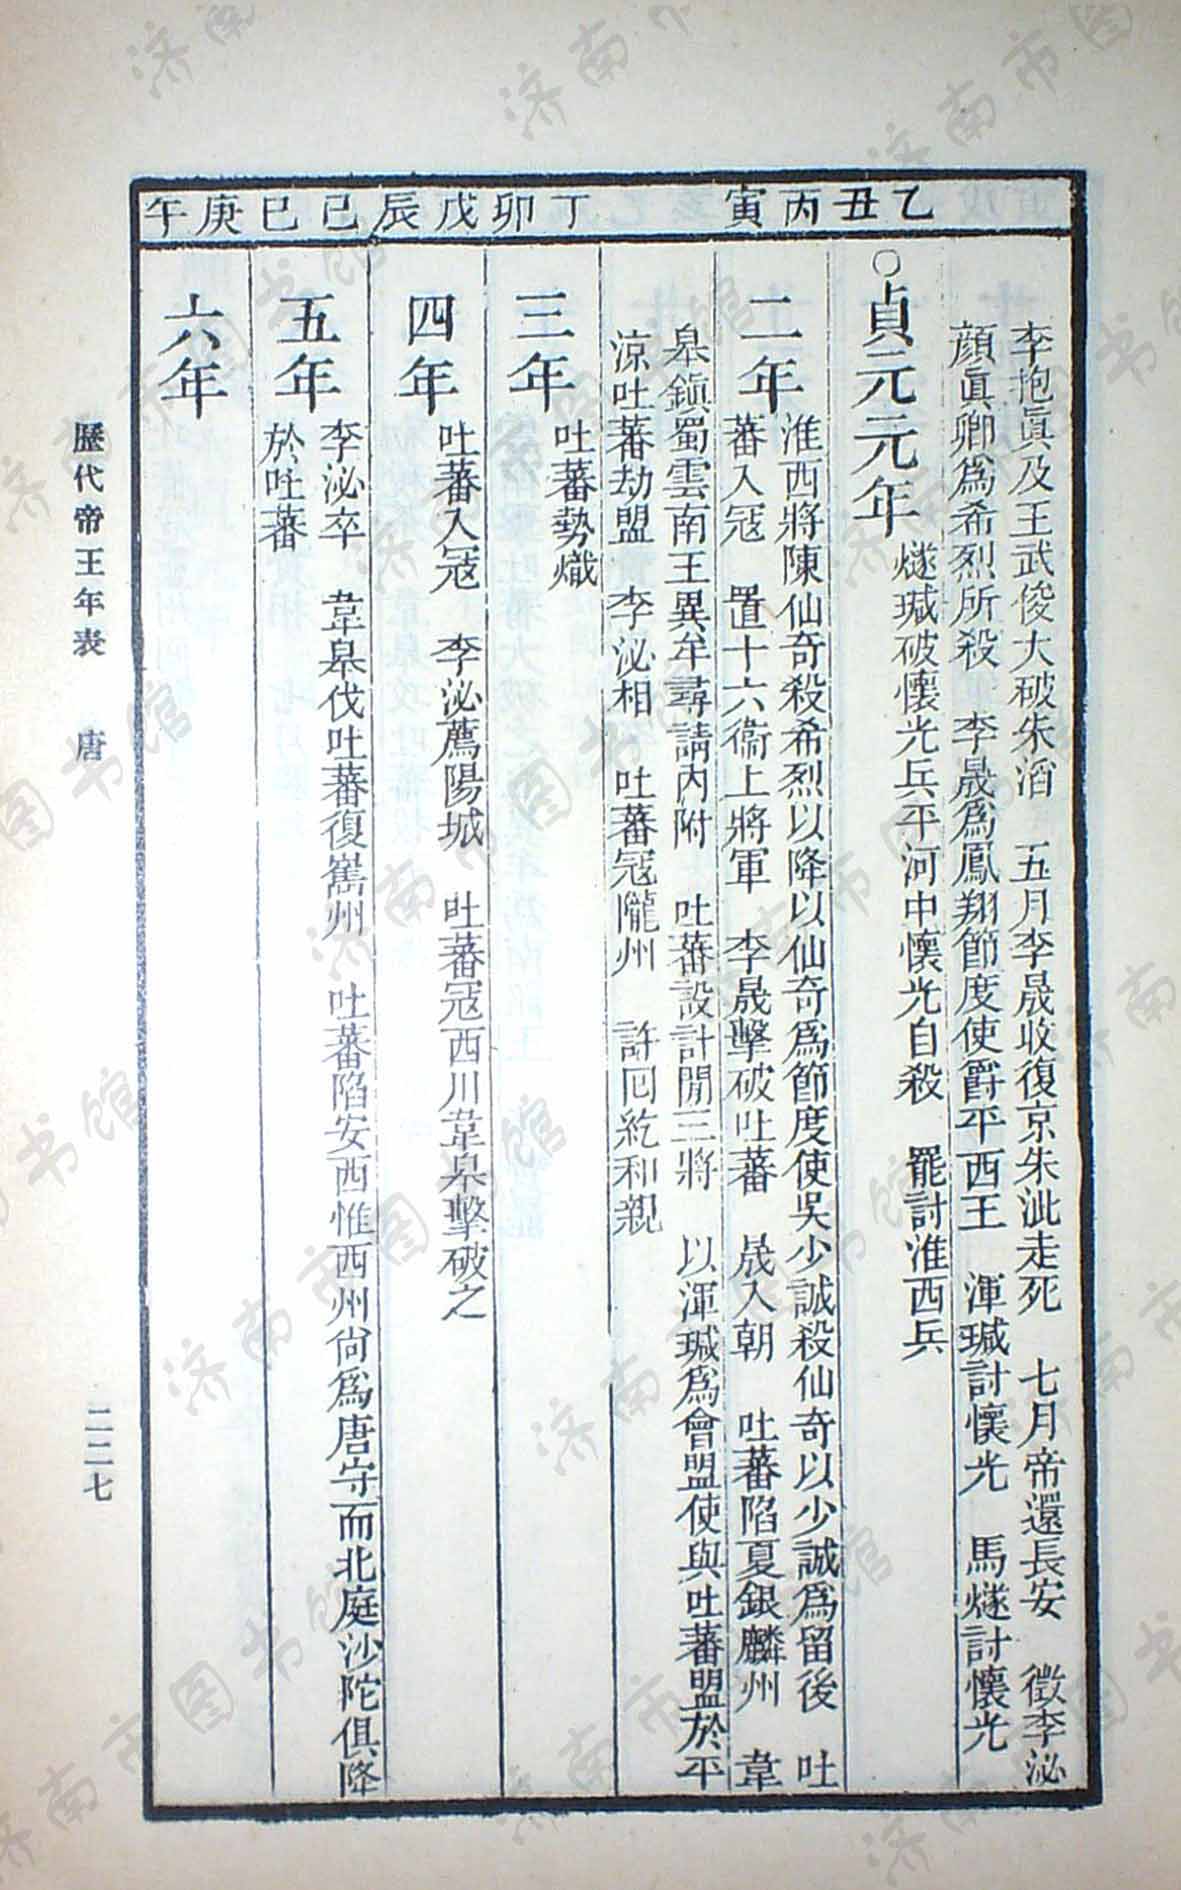 乙丑
丙寅
丁卯
戊辰
己巳
庚午
李抱眞及王武俊大破朱滔　五月李晟收復京朱泚走死　七月帝還長安　徵李泌
顔眞卿爲希烈所殺　李晟爲鳳翔節度使爵平西王　渾瑊討懷光　馬燧討懷光
○貞元元年
燧瑊破懷光兵平河中懷光自殺　罷討淮西兵
二年
淮西將陳仙奇殺希烈以降以仙奇爲節度使吳少誠殺仙奇以少誠爲留後　吐
蕃入寇　置十六衞上將軍　李晟擊破吐蕃　晟入朝　吐蕃陷夏銀麟州　韋
皋鎭蜀雲南王異牟尋請內附　吐蕃設計閒三將　以渾瑊爲會盟使與吐蕃盟於平
涼吐蕃劫盟　李泌相　吐蕃寇隴州　許回紇和親
三年
吐蕃勢熾
四年
吐蕃入寇　李泌薦陽城　吐蕃寇西川韋皋擊破之
五年
李泌卒　韋皋伐吐蕃復嶲州　吐蕃陷安西惟西州尙爲唐守而北庭沙陀俱降
於吐蕃
六年
歷代帝王年表　唐
二二七
济南市图书馆